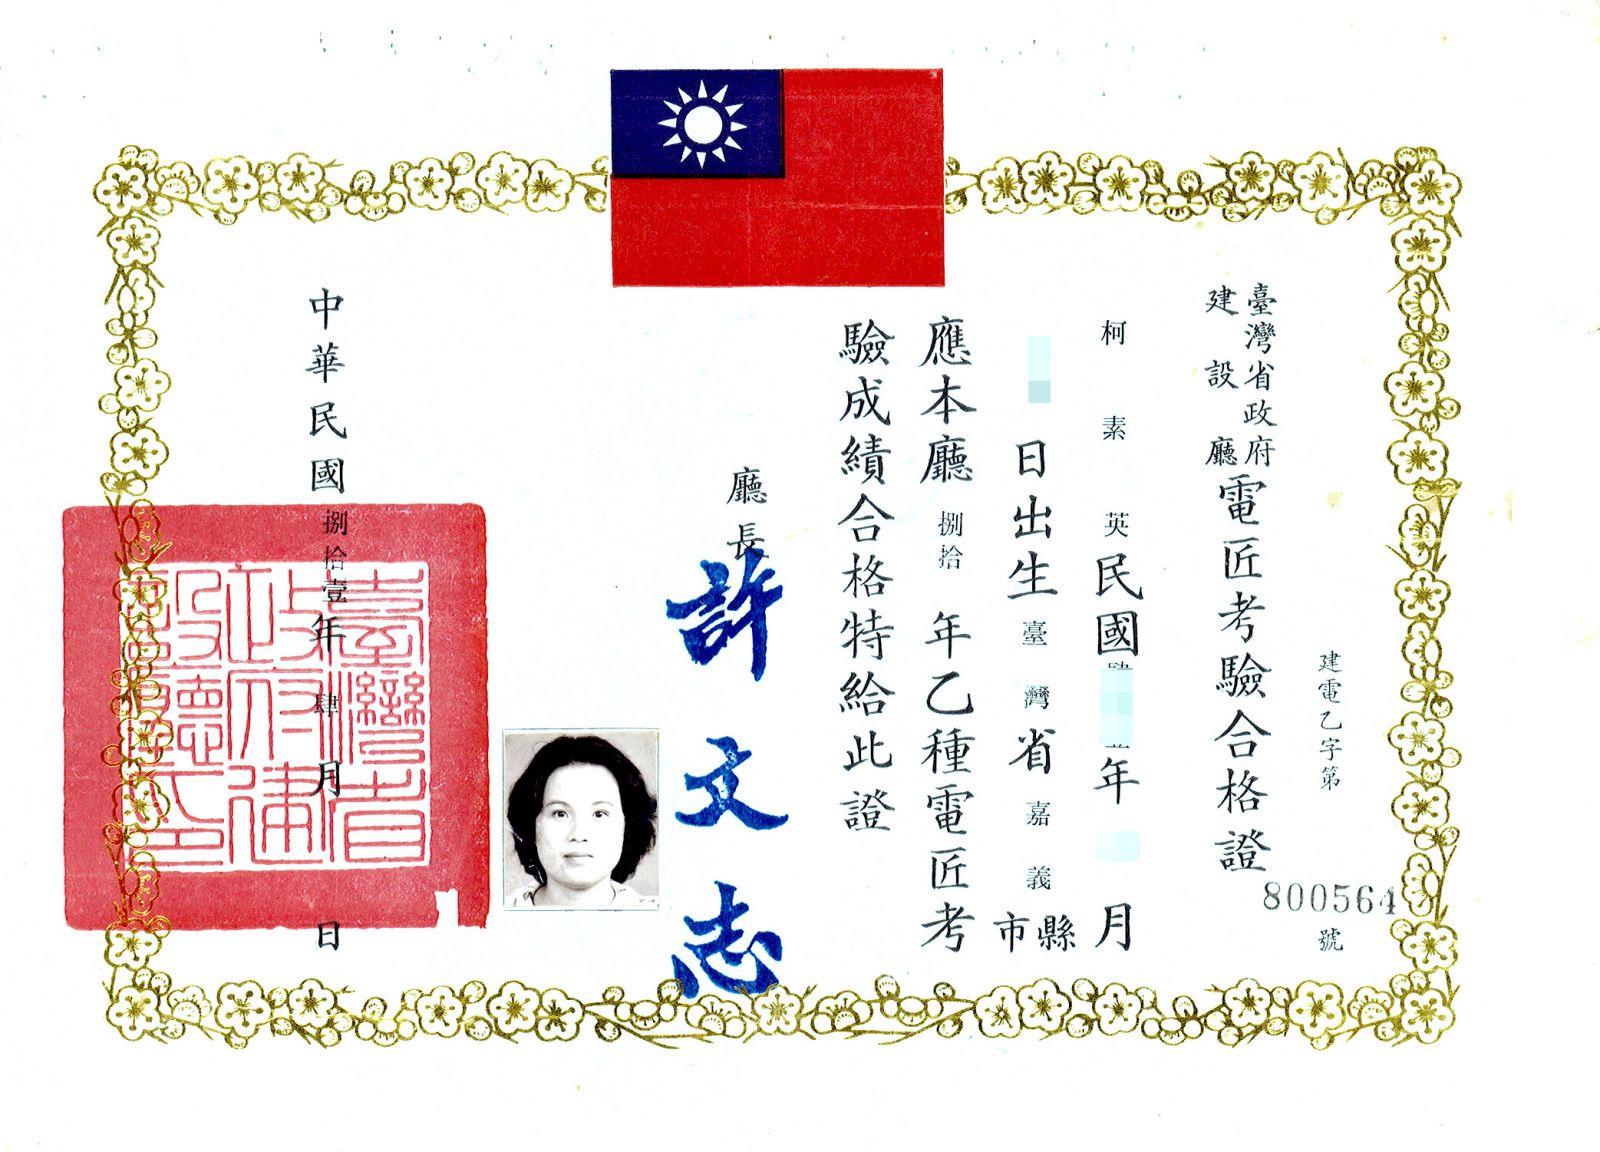 建電乙字第
800564
號
臺灣省政府
建設廳
電匠考驗合格證
柯素英民國
年
月
日出生臺灣省嘉義
縣
市
應本廳捌拾年乙種電匠考
驗成績合格特給此證
廳長許文志
中華民國捌拾壹年肆月
日
臺灣省
政府建
設廳印